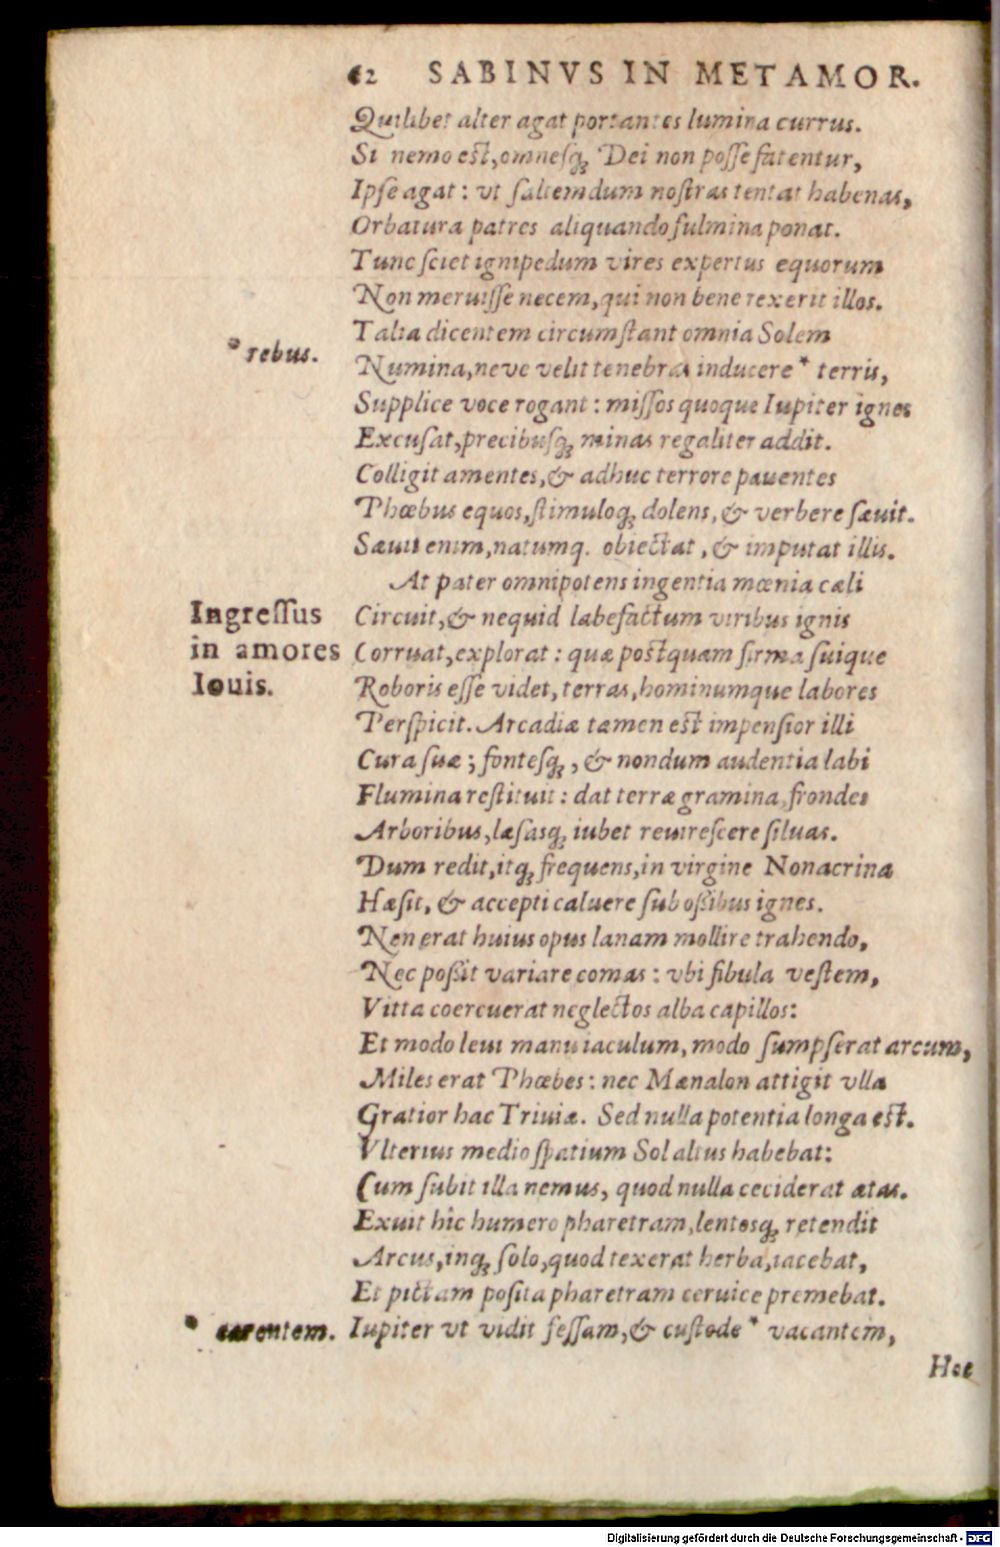 62 SABINVS IN METAMOR.
Quilibet alter agat portantes lumina currus.
Si nemo est, omnesq; Dei non posse fatentur,
Ipse agat: vt saltem dum nostras tentat habenas,
Orbatura patres aliquando fulmina ponat.
Tunc sciet ignipedum vires expertus equorum
Non meruisse necem, qui non bene rexerit illos.
Talia dicentem circumstant omnia Solem
* rebus.
Numina, neve velit tenebras inducere * terris,
Supplice voce rogant: missos quoque Iupiter ignes
Excusat, precibusq; minas regaliter addit.
Colligit amentes, & adhuc terrore pauentes
Phœbus equos, stimuloq; dolens, & verbere sæuit.
Sæuit enim, natumq. obiectat, & imputat illis.
At pater omnipotens ingentia mœnia cæli
Ingressus
in amores
Iouis.
Circuit, & nequid labefactum viribus ignis
Corruat, explorat: quæ postquam firma suique
Roboris esse videt, terras, hominumque labores
Perspicit. Arcadiæ tamen est impensior illi
Cura suæ; fontesq;, & nondum audentia labi
Flumina restituit: dat terræ gramina, frondes
Arboribus, læsasq; iubet reuirescere siluas.
Dum redit, itq; frequens, in virgine Nonacrina
Hæsit, & accepti caluere sub ossibus ignes.
Non erat huius opus lanam mollire trahendo,
Nec possit variare comas: vbi fibula vestem,
Vitta coercuerat neglectos alba capillos:
Et modo leui manu iaculum, modo sumpserat arcum,
Miles erat Phœbes: nec Mænalon attigit vlla
Gratior hac Triuiæ. Sed nulla potentia longa est.
Vlterius medio spatium Sol altus habebat:
Cum subit illa nemus, quod nulla ceciderat ætas.
Exuit hic humero pharetram, lentosq; retendit
Arcus, inq; solo, quod texerat herba, iacebat,
Et pictam posita pharetram ceruice premebat.
* carentem.
Iupiter vt vidit fessam, & custode * vacantem,
Hoc
Digitalisierung gefördert durch die Deutsche Forschungsgemeinschaft - DFG